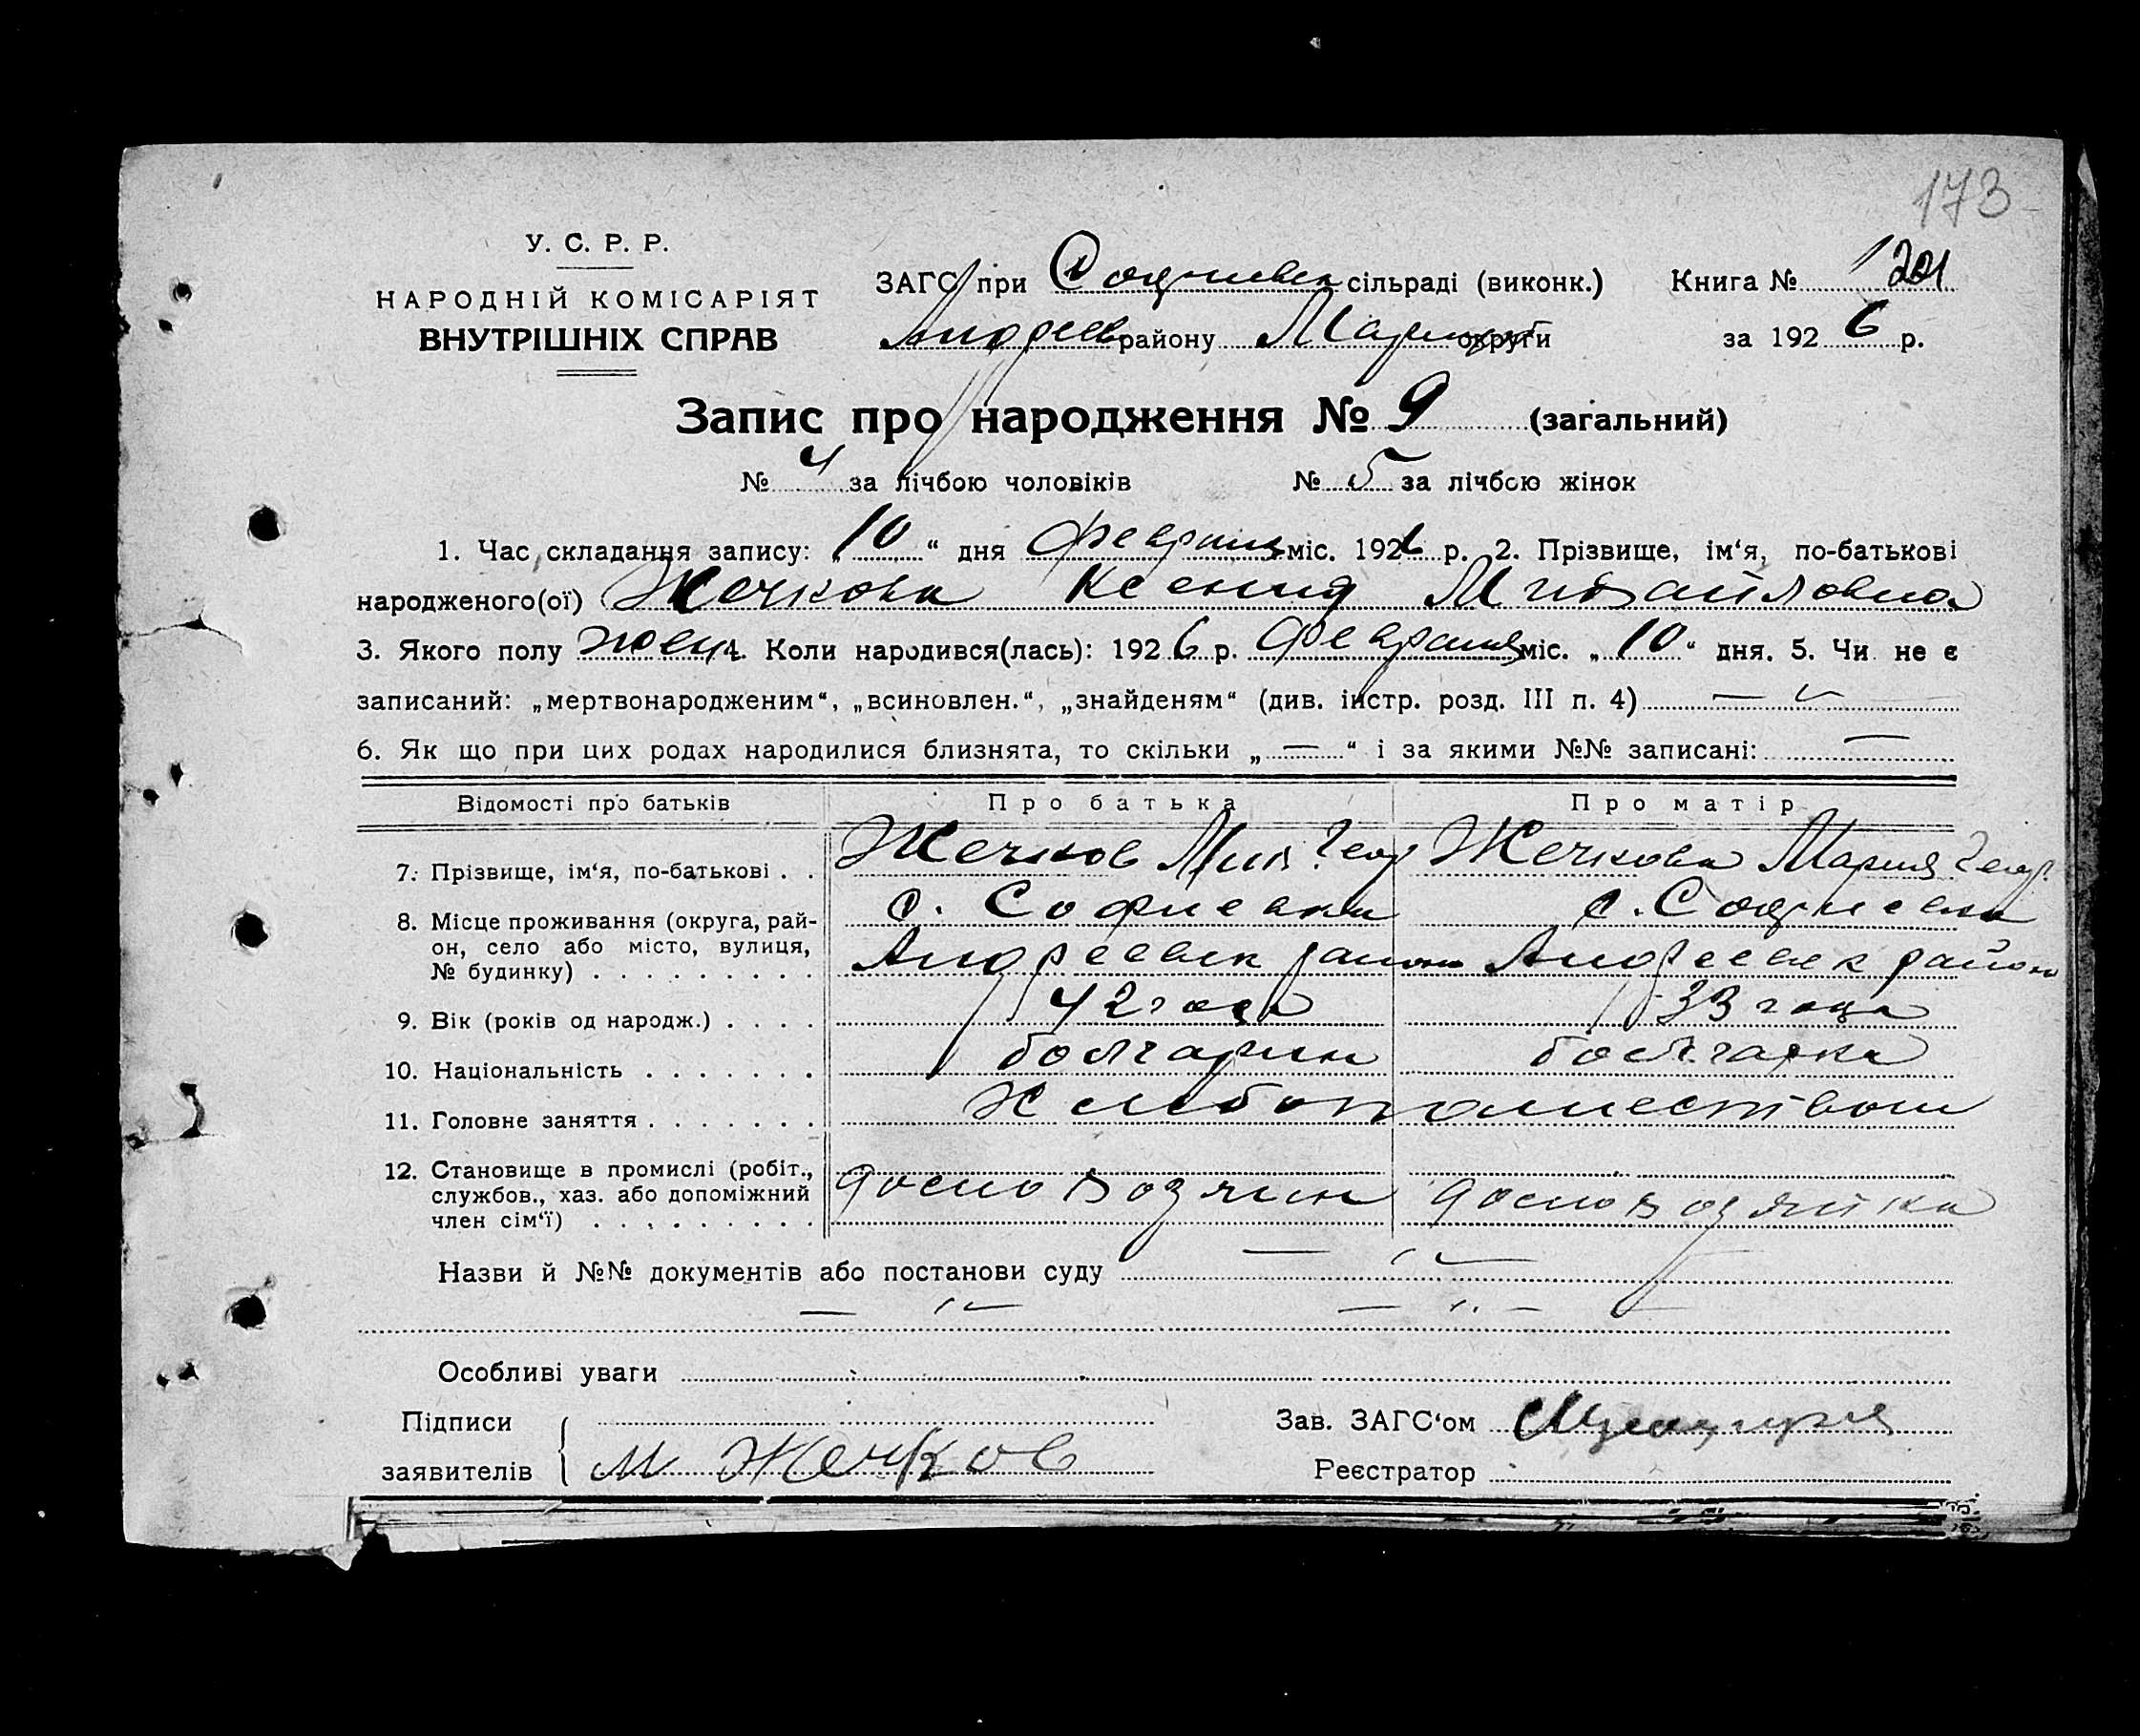 173
У. С. Р. Р.
НАРОДНІЙ КОМІСАРІЯТ
ВНУТРІШНІХ СПРАВ
ЗАГС при Софиевк сільраді (виконк.) Книга № 1201
Андреев району Мариуп округи за 1926 р.
Запис про народження № 9 (загальний)
№ 4 за лічбою чоловіків № 5 за лічбою жінок
1. Час складання запису: „10“ дня февраля міс. 1926 р. 2. Прізвище, ім‘я, по-батькові
народженого(ої) Жечкова Ксения Михайловна
3. Якого полу женс 4. Коли народився(лась): 1926 р. февраля міс. „10“ дня. 5. Чи не є
записаний: „мертвонародженим“, „всиновлен.“, „знайденям“ (див. інстр. розд. III п. 4) — „ —
6. Як що при цих родах народилися близнята, то скільки „—“ і за якими №№ записані: —
Відомості про батьків Про батька Про матір
7. Прізвище, ім‘я, по-батькові . . Жечков Мих Геор Жечкова Мария Геор.
8. Місце проживання (округа, рай- с. Софиевки с. Софиевки
он, село або місто, вулиця, Андреевск района Андреевск района
№ будинку) . . . . . . . . .
9. Вік (років од народж.) . . . . 42 года 33 года
10. Національність . . . . . . . болгарин болгарка
11. Головне заняття . . . . . . . Хлебопашеством
12. Становище в промислі (робіт.,
службов., хаз. або допоміжний домохозяин домохозяйка
член сім‘ї) . . . . . . . . .
Назви й №№ документів або постанови суду — „ —
— „ — — „ —
Особливі уваги
Підписи Зав. ЗАГС‘ом
заявителів М Жечков Реєстратор